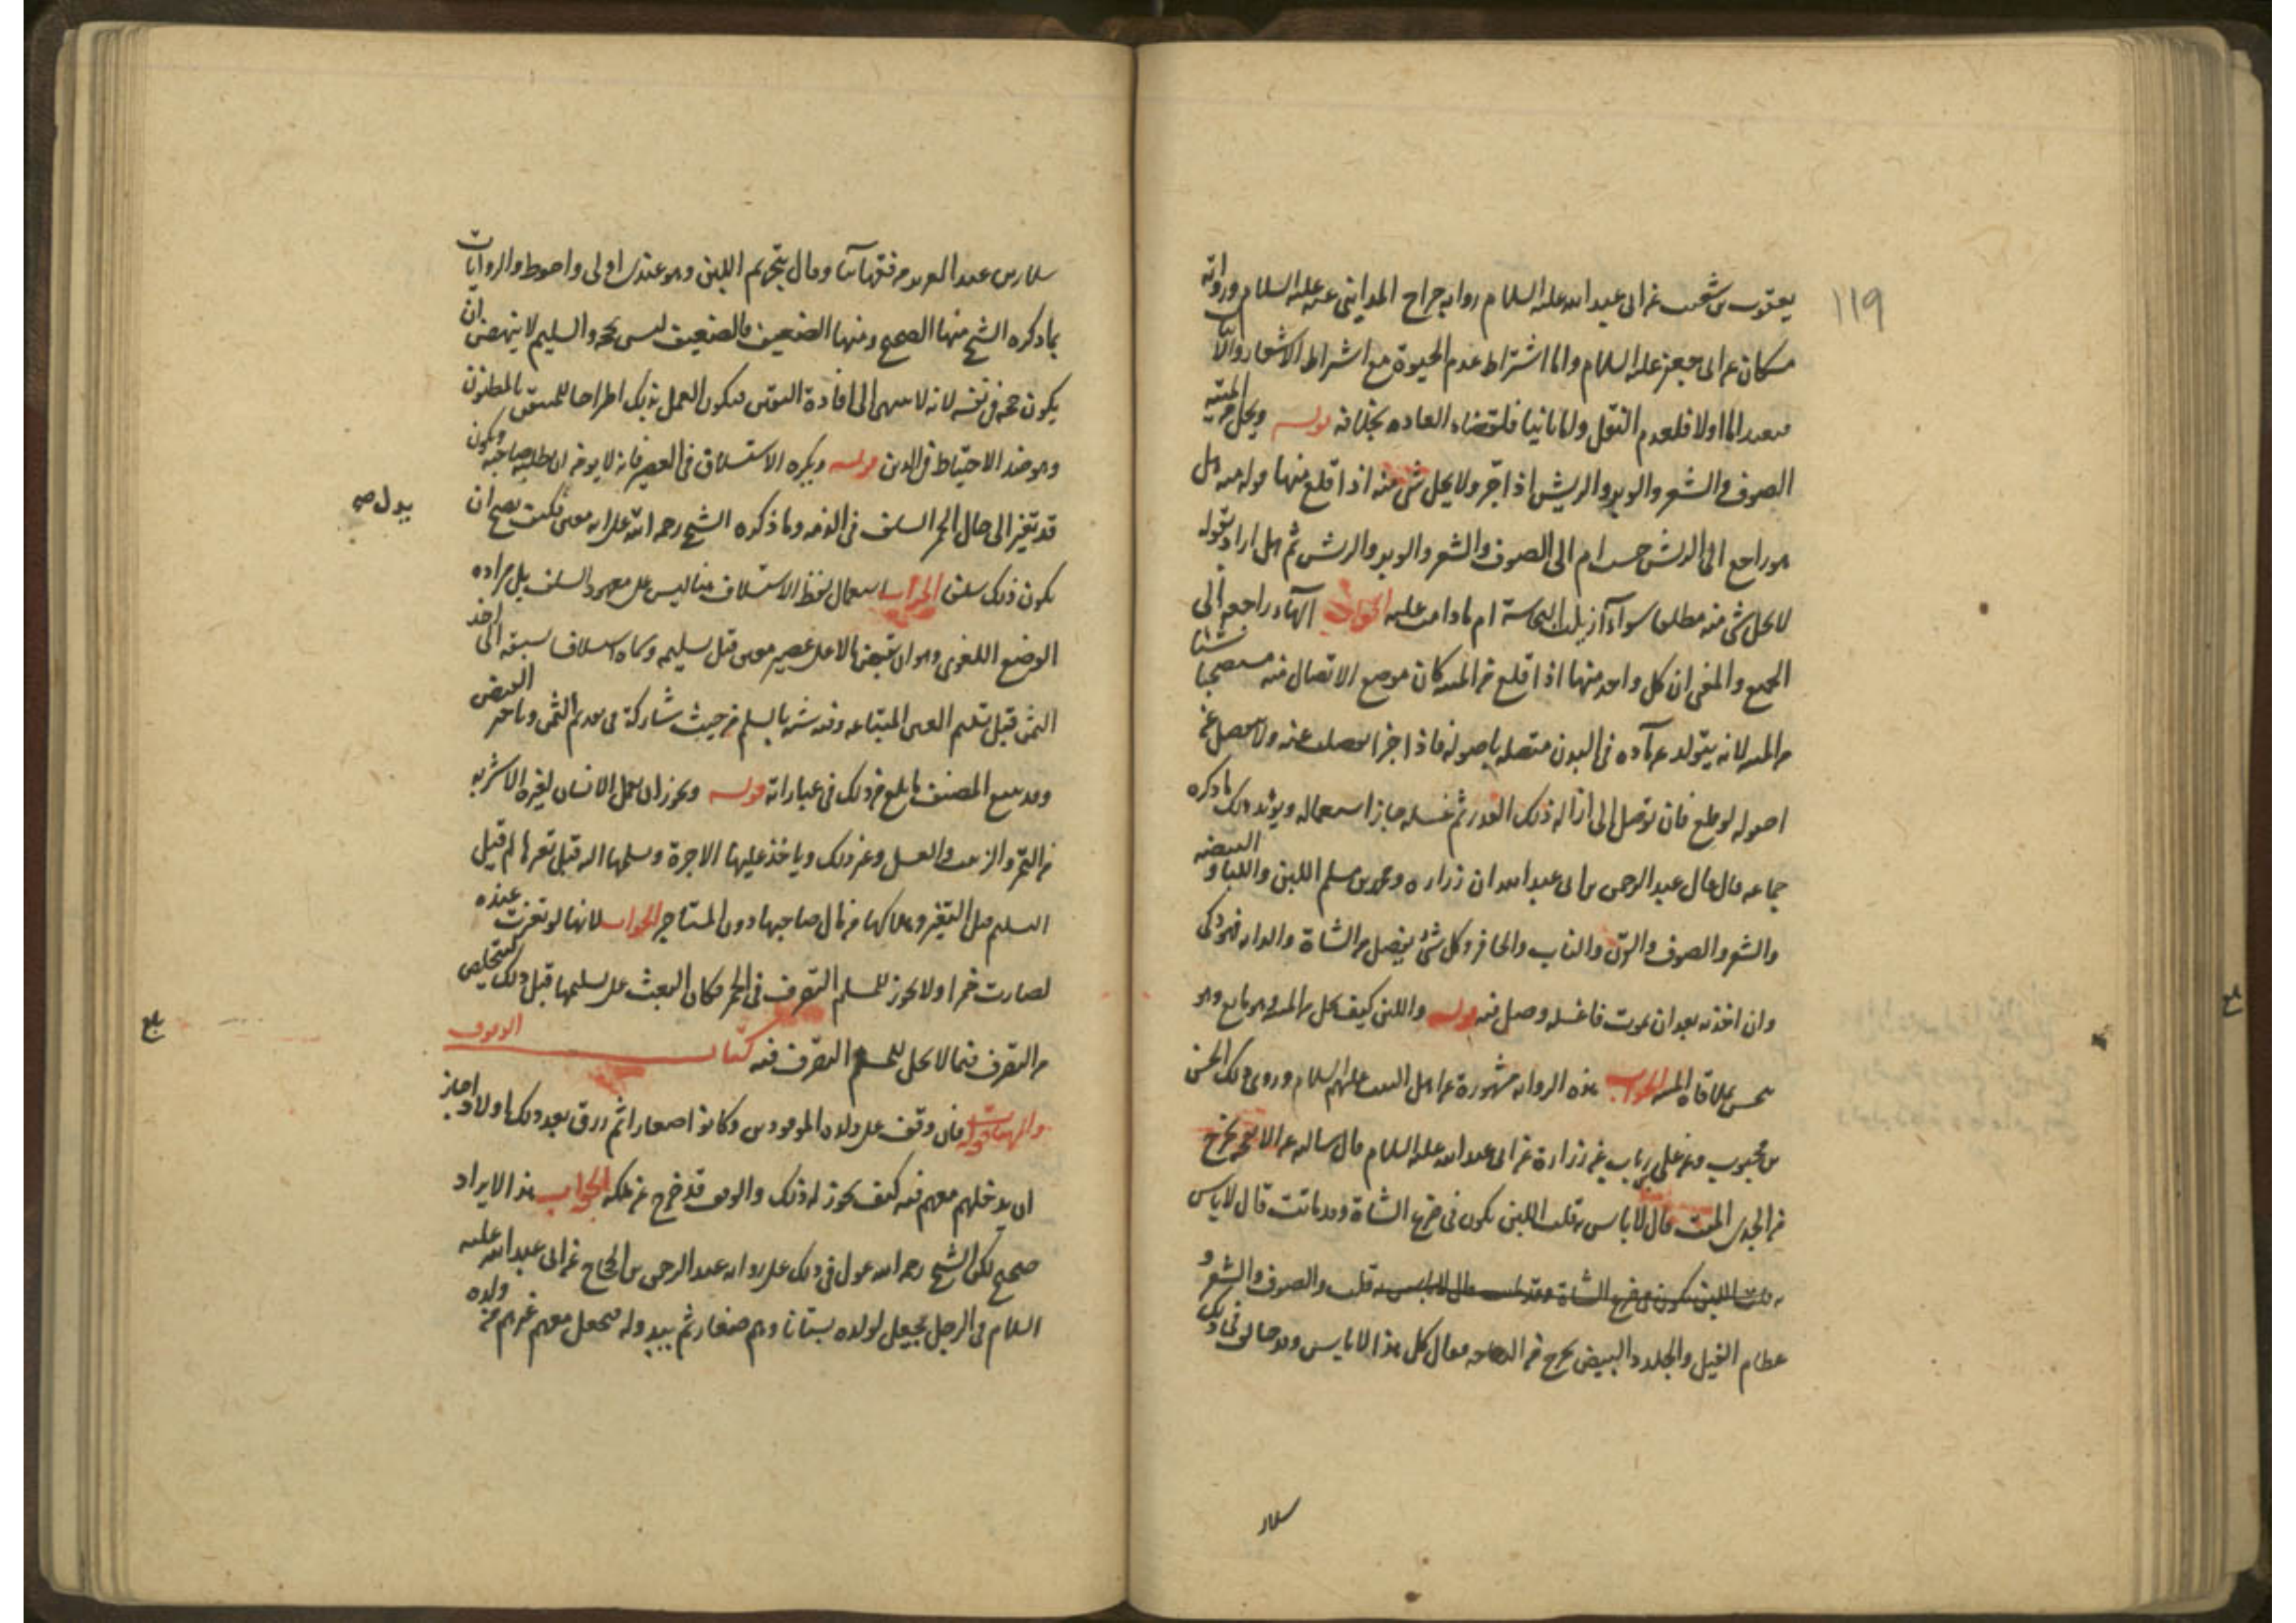 ١١٩
يعقوب بن شعيب عن ابى عبد الله عليه السلام رواية جراح المداينى عنه عليه السلام ورواية
مسكان عن ابى جعفر عليه السلام واما اشتراط عدم الحيوة مع اشتراط الاشعار والا
اما اولا فلعدم النقل واما ثانيا فلقضاء العاده بخلافه قوله ويحل من الميته
الصوف والشعر والوبر والريش اذا جز ولا يحل شى منه اذا قلع منها قوله منه هل
هو راجع الى الريش حسب ام الى الصوف والشعر والوبر والريش ثم هل اراد بقوله
لا يحل شى منه مطلقا سواء ازيلت النجاسة ام ما دامت عليه الجواب الهاء راجعه الى
الجميع والمعنى ان كل واحد منها اذا قلع من الميته كان موضع الاتصال منه مستصحبا شيئا
من الميته لانه يتولد عن ماده فى البدن متصله باصوله فاذا جز انفصلت عنه ولا تنفصل عن
اصوله لو قلع فان توصل الى ازالة ذلك القدر ثم غسله جاز استعماله ويؤيد ذلك ما ذكره
جماعه قال قال عبد الرحمن بن ابى عبد الله ان زراره ومحمد بن مسلم اللبن واللباء والبيضه
والشعر والصوف والقرن والناب والحافر وكل شئ يفصل من الشاة والدابه فهو ذكى
وان اخذته بعد ان يموت فاغسله وصل فيه قوله واللبن كيف يحل من الميته وهو مايع وهو
ينجس بملاقاة الميته الجواب هذه الروايه مشهورة عن اهل البيت عليهم السلام وروى ذلك الحسن
بن محبوب وعن على بن رياب عن زرارة عن ابى عبد الله عليه السلام قال سالته عن الانفحه تخرج
من الجدى الميت قال لا باس به قلت اللبن يكون فى ضرع الشاة وقد ماتت قال لا باس
به قلت اللبن يكون فى ضرع الشاة وقد ماتت قال لا باس به قلت والصوف والشعر و
عظام الفيل والجلد والبيض يخرج من الدجاجه فقال كل هذا لا باس وقد خالف فى ذلك
سلار
سلار بن عبد العزيز من فقهائنا وقال بتحريم اللبن وهو عندى اولى واحوط والروايات
بما ذكره الشيخ منها الصحيح ومنها الضعيف فالضعيف ليس بحجه والسليم لا ينهض ان
يكون حجه فى نفسه لانه لا ينتهى الى افادة اليقين فيكون العمل بذلك اطراحا للمتيقن بالمظنون
وهو ضد الاحتياط فى الدين قوله ويكره الاستسلاف فى العصير فانه لا يومن ان يطلبه صاحبه ويكون
قد تغير الى حال الخمر السلف فى الذمه وما ذكره الشيخ رحمه الله على انه معين فكيف يصح ان
يكون ذلك سلف الجواب استعمال لفظ الاستسلاف هنا ليس على معهود السلف بل مراده
الوضع اللغوى وهو ان يقبض مالا على عصير معين قبل تسليمه وسماه اسلافا لسبقه الى اخذ
الثمن قبل تسليم العين المبتاعه وفيه شبه بالسلم من حيث شاركه فى تقديم الثمن وتاخير القبض
وقد يبيع المصنف ما بلغ من ذلك فى عباراته قوله ويجوز ان يعمل الانسان لغيره الاشربه
من التمر والزبيب والعسل وغير ذلك وياخذ عليها الاجرة ويسلمها اليه قبل تغيرها لم قيل
التسليم قبل التغير وهلاكها من مال صاحبها دون المستاجر الجواب لانها لو تغيرت عنده
لصارت خمرا ولا يجوز للمسلم التصرف فى الخمر فكان البعث على تسليمها قبل ذلك ليتخلص
من التصرف فيما لا يحل للمسلم التصرف فيه كتاب الوقوف
والهبات قوله فان وقف على ولده الموجودين وكانوا اصغارا ثم رزق بعد ذلك اولادا جاز
ان يدخلهم معهم فيه كيف يجوز له ذلك والوقف قد خرج عن ملكه الجواب هذا الايراد
صحيح لكن الشيخ رحمه الله عول فى ذلك على رواية عبد الرحمن بن الحجاج عن ابى عبد الله عليه
السلام فى الرجل يجعل لولده بستانا وهم صغار ثم يبدو له يجعل معهم غيرهم من ولده